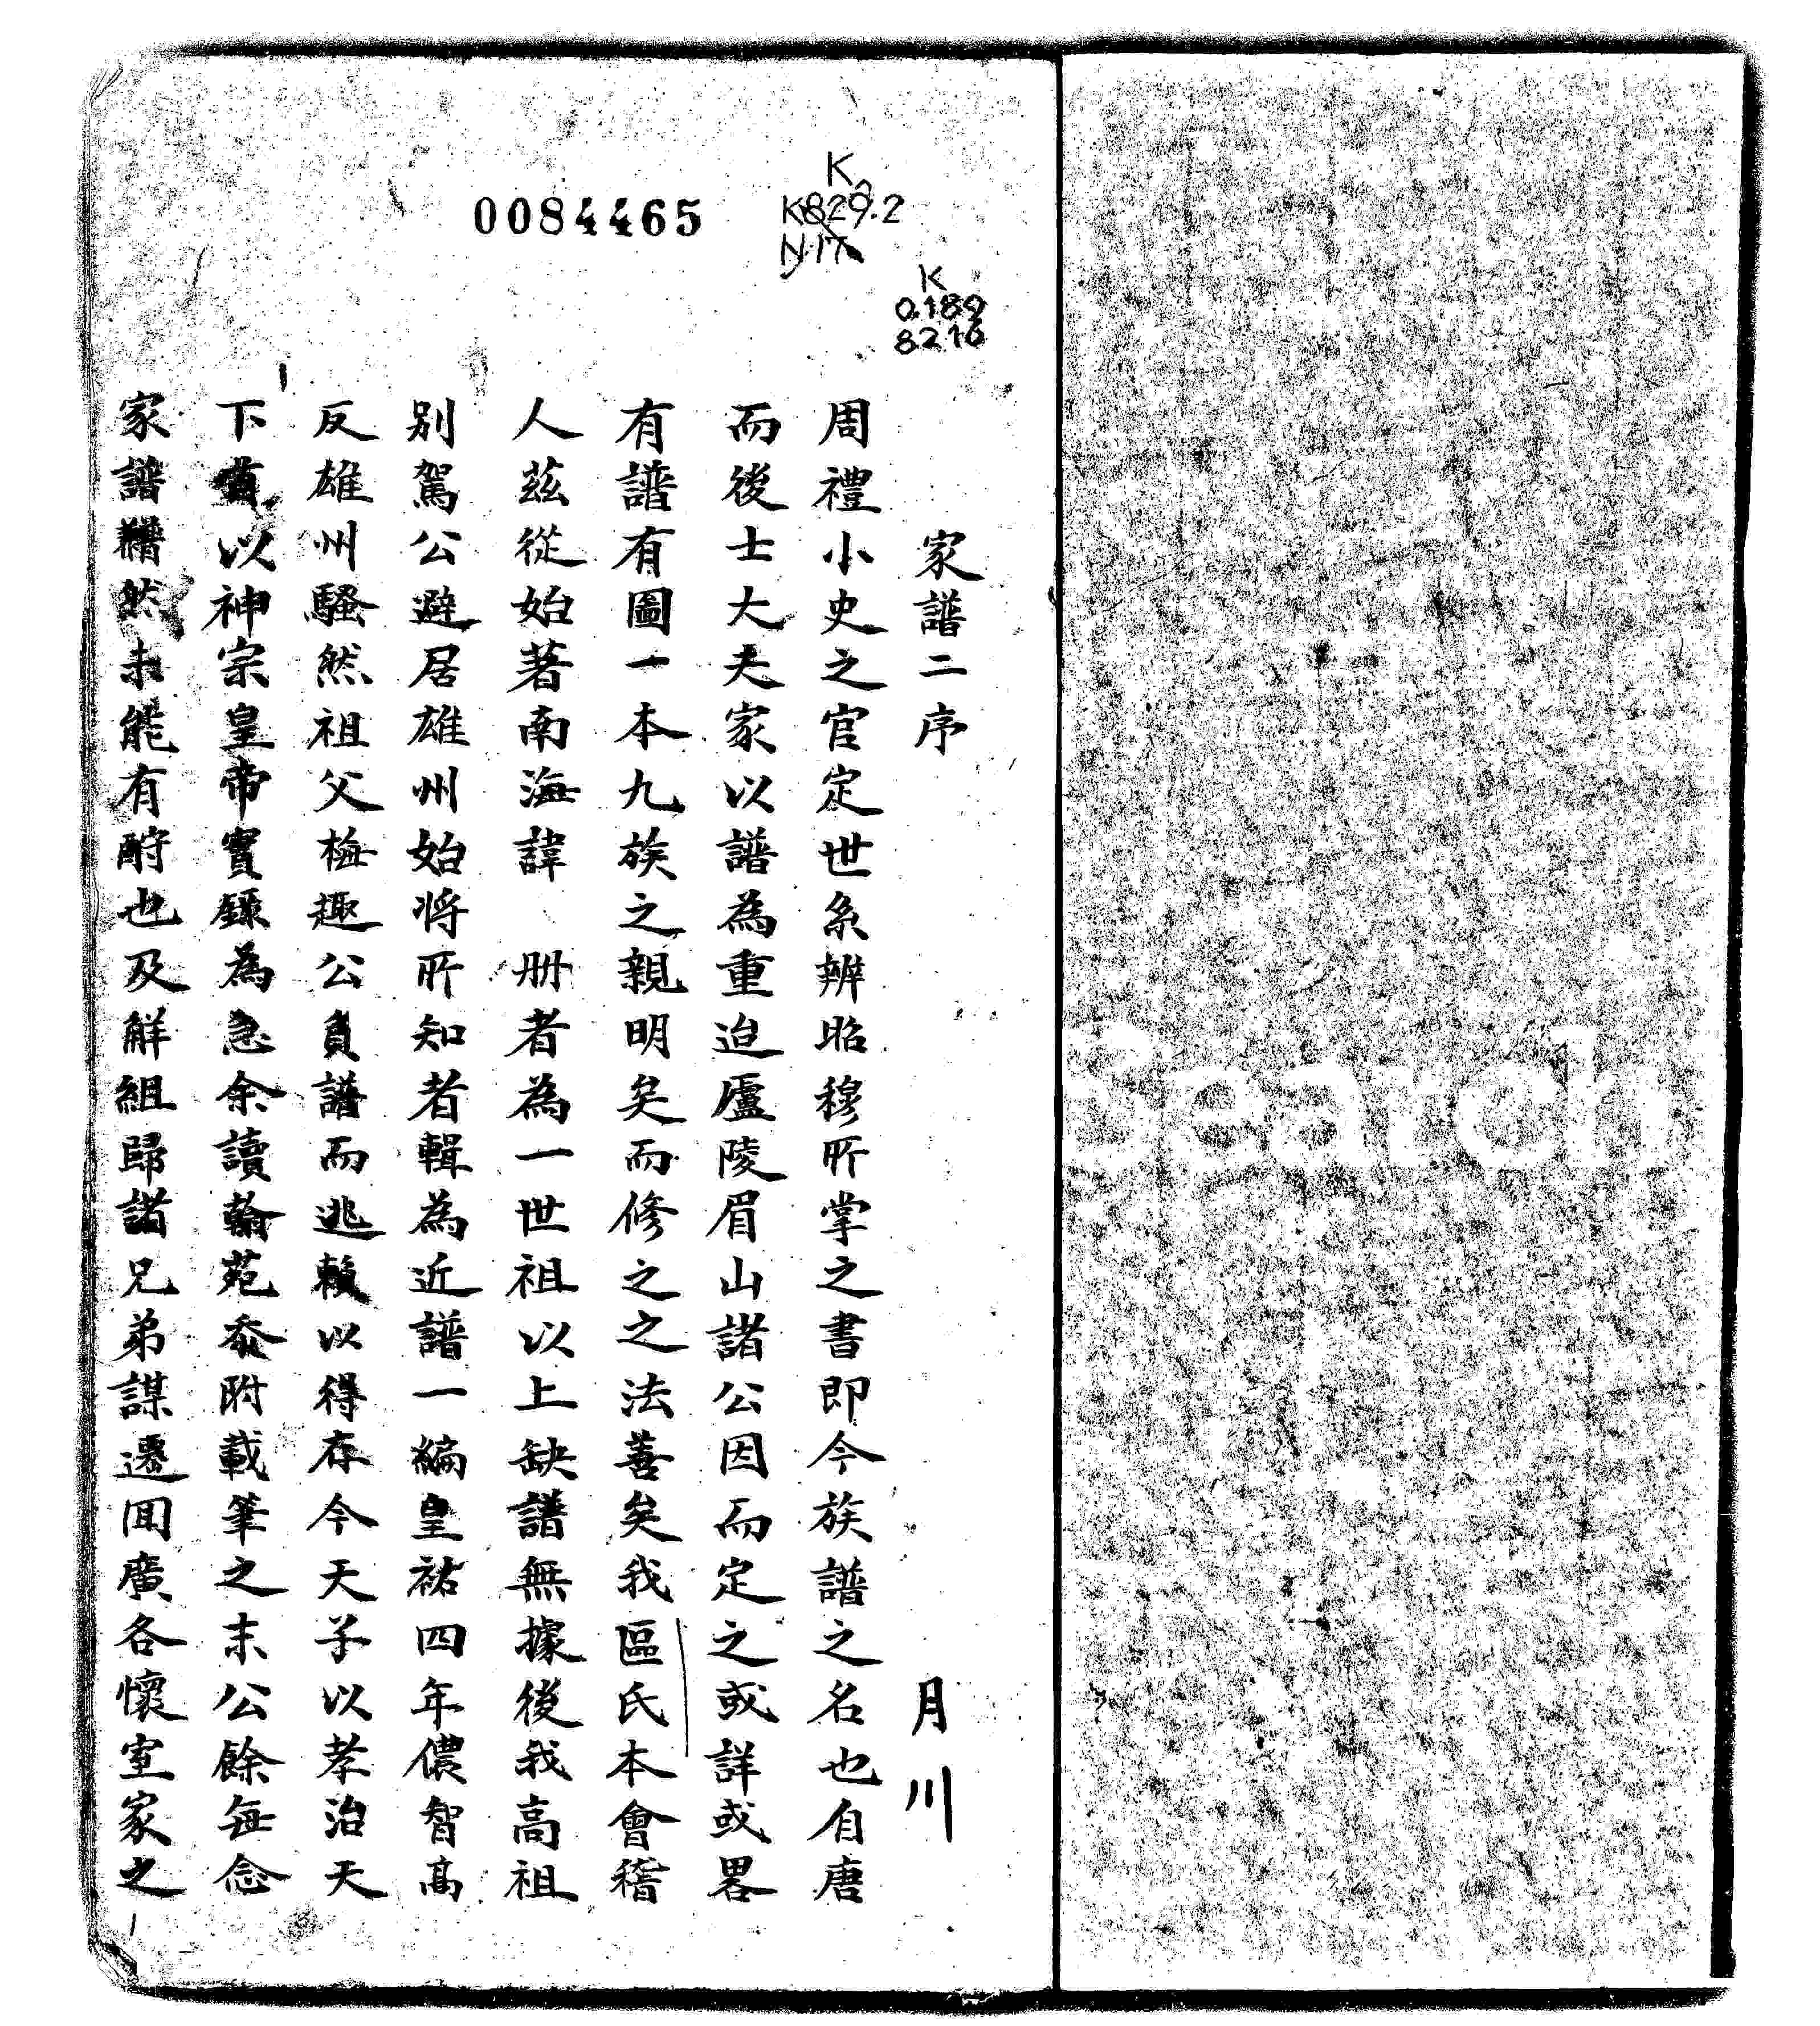 0084465
K
K829.2
N.17
K
0.189
8216
家譜二序
月川
周禮小史之官定世系辨昭穆所掌之書即今族譜之名也自唐
而後士大夫家以譜為重迨廬陵眉山諸公因而定之或詳或畧
有譜有圖一本九族之親明矣而修之之法善矣我區氏本會稽
人茲從始著南海諱 册者為一世祖以上缺譜無據後我高祖
别駕公避居雄州始将所知者輯為近譜一編皇祐四年儂智高
反雄州騷然祖父梅趣公負譜而逃賴以得存今天子以孝治天
下首以神宗皇帝實錄為急余讀翰苑忝附載筆之末公餘每念
家譜 然未能有酧也及解組歸諸兄弟謀遷囬廣各懷室家之
Search